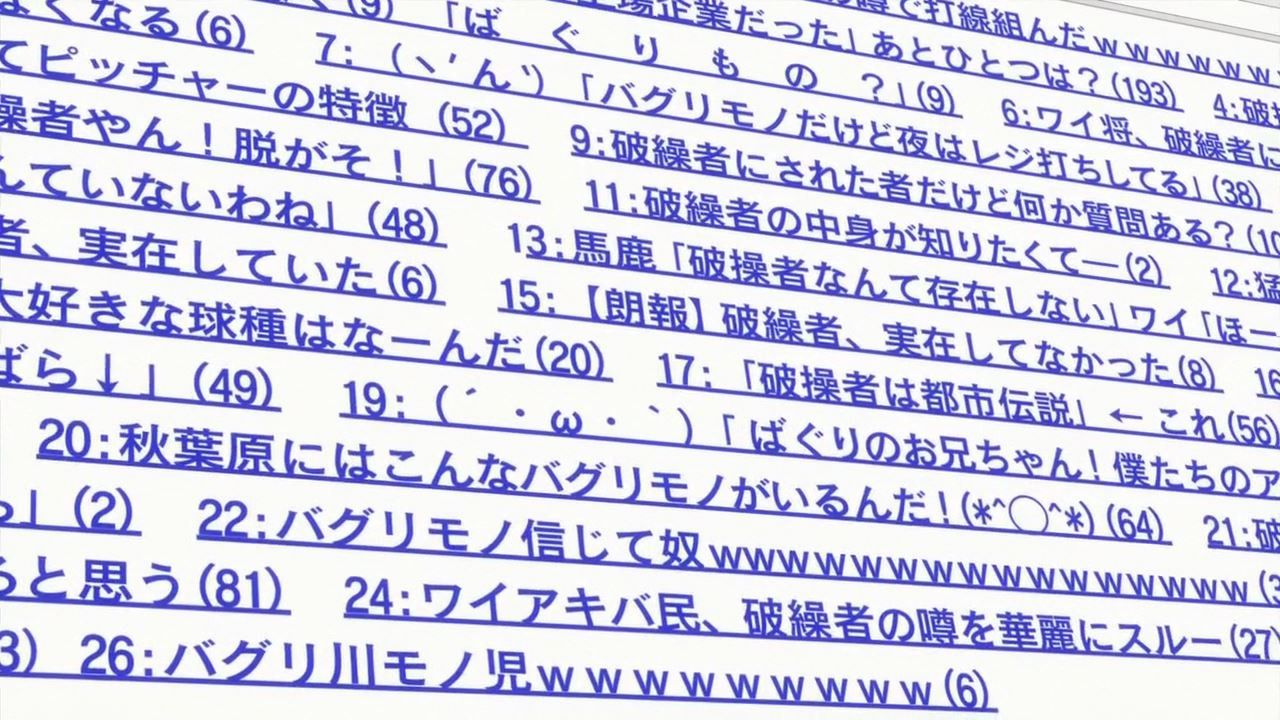 なる(6) 7: （ヽ´ん`）「バグリモノだけど夜はレジ打ちしてる」(38)
(9) 「ば ぐ り も の ？」(9) 6:ワイ将、破繰者に
上場企業だった」あとひとつは？(193) 4:破
噂で打線組んだｗｗｗｗｗｗ
てピッチャーの特徴 (52) 9:破繰者にされた者だけど何か質問ある？(10
操者やん！脱がそ！」(76) 11:破繰者の中身が知りたくて―(2) 12:猛
んていないわね」(48) 13:馬鹿「破操者なんて存在しない」ワイ「ほー
者、実在していた(6) 15:【朗報】破繰者、実在してなかった(8) 16
大好きな球種はなーんだ(20) 17: 「破操者は都市伝説」 ← これ(56)
ばら↓」(49) 19: (´・ω・｀)「ばぐりのお兄ちゃん！僕たちのア
20:秋葉原にはこんなバグリモノがいるんだ！(*^◯^*) (64) 21:破
」(2) 22:バグリモノ信じて奴ｗｗｗｗｗｗｗｗｗｗｗｗｗｗｗ(3
らと思う(81) 24:ワイアキバ民、破繰者の噂を華麗にスルー(27)
3) 26:バグリ川モノ児ｗｗｗｗｗｗｗｗｗ(6)